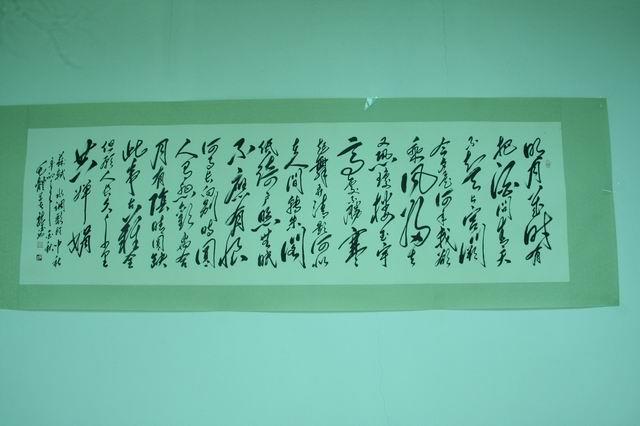 明月幾時有
把酒問青天
不知天上宮闕
今夕是何年我欲
乘風歸去
又恐瓊樓玉宇
高處不勝寒
起舞弄清影何似
在人間轉朱閣
低綺戶照無眠
不應有恨
何事長向別時圓
人有悲歡離合
月有陰晴圓缺
此事古難全
但願人長久千里
共嬋娟
蘇軾 水調歌頭 中秋